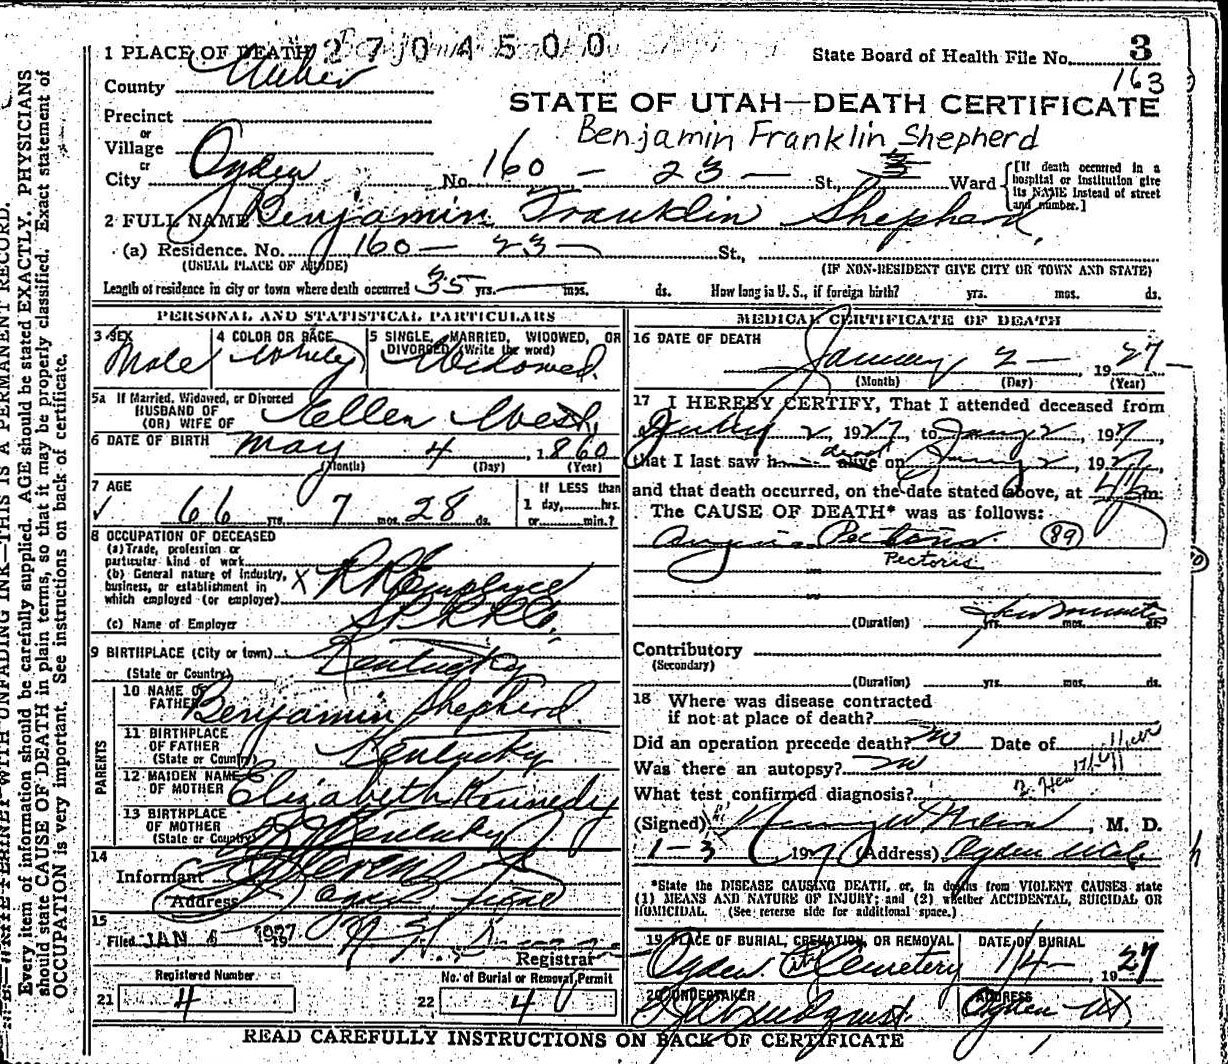 1 PLACE OF DEATH 2704500
State Board of Health File No. 3
163
County Weber
STATE OF UTAH—DEATH CERTIFICATE
Precinct
or
Village
Benjamin Franklin Shepherd
or
City Ogden No. 160 — 23 — St., Ward
[If death occurred in a hospital or institution give its NAME instead of street and number.]
2 FULL NAME Benjamin Franklin Shepherd.
(a) Residence. No. 160 — 23 — St.,
(USUAL PLACE OF ABODE) (IF NON-RESIDENT GIVE CITY OR TOWN AND STATE)
Length of residence in city or town where death occurred 35 yrs. mos. ds. How long in U. S., if foreign birth? yrs. mos. ds.
PERSONAL AND STATISTICAL PARTICULARS
3 SEX Male
4 COLOR OR RACE White
5 SINGLE, MARRIED, WIDOWED, OR DIVORSED (Write the word) Widowed.
5a If Married, Widowed, or Divorced
HUSBAND OF
(OR) WIFE OF Ellen West.
6 DATE OF BIRTH May 4, 1860
(Month) (Day) (Year)
7 AGE 66 yrs. 7 mos. 28 ds.
If LESS than 1 day, hrs. or min.?
8 OCCUPATION OF DECEASED
(a) Trade, profession or particular kind of work
(b) General nature of industry, business, or establishment in which employed (or employer) X RR Employee
(c) Name of Employer S.P.R.R.Co.
9 BIRTHPLACE (City or town)
(State or Country) Kentucky
PARENTS
10 NAME OF FATHER Benjamin Shepherd.
11 BIRTHPLACE OF FATHER (State or Country) Kentucky
12 MAIDEN NAME OF MOTHER Elizabeth Kennedy
13 BIRTHPLACE OF MOTHER (State or Country) Kentucky
14
Informant
(Address) Ogden
15
Filed JAN 1927
Registrar
Registered Number
21 4
No. of Burial or Removal Permit
22 4
MEDICAL CERTIFICATE OF DEATH
16 DATE OF DEATH January 2 — 1927
(Month) (Day) (Year)
17 I HEREBY CERTIFY, That I attended deceased from
2, 1927, to Jany 2, 1927,
that I last saw h alive dead on Jany 2, 1927,
and that death occurred, on the date stated above, at m.
The CAUSE OF DEATH* was as follows:
Angina Pectoris (89)
Pectoris
(Duration) few minutes yrs. mos. ds.
Contributory
(Secondary)
(Duration) yrs. mos. ds.
18 Where was disease contracted
if not at place of death?
Did an operation precede death? no Date of
Was there an autopsy? no
What test confirmed diagnosis?
(Signed) , M. D.
1-3 1927 (Address) Ogden Utah
*State the DISEASE CAUSING DEATH, or, in deaths from VIOLENT CAUSES state
(1) MEANS AND NATURE OF INJURY; and (2) whether ACCIDENTAL, SUICIDAL OR
HOMICIDAL. (See reverse side for additional space.)
19 PLACE OF BURIAL, CREMATION, OR REMOVAL Ogden City Cemetery
DATE OF BURIAL 1/4 — 1927
20 UNDERTAKER Lindquist.
ADDRESS Ogden Ut.
READ CAREFULLY INSTRUCTIONS ON BACK OF CERTIFICATE
WITH UNFADING INK—THIS IS A PERMANENT RECORD.
Every item of information should be carefully supplied. AGE should be stated EXACTLY. PHYSICIANS
should state CAUSE OF DEATH in plain terms, so that it may be properly classified. Exact statement of
OCCUPATION is very important. See instructions on back of certificate.